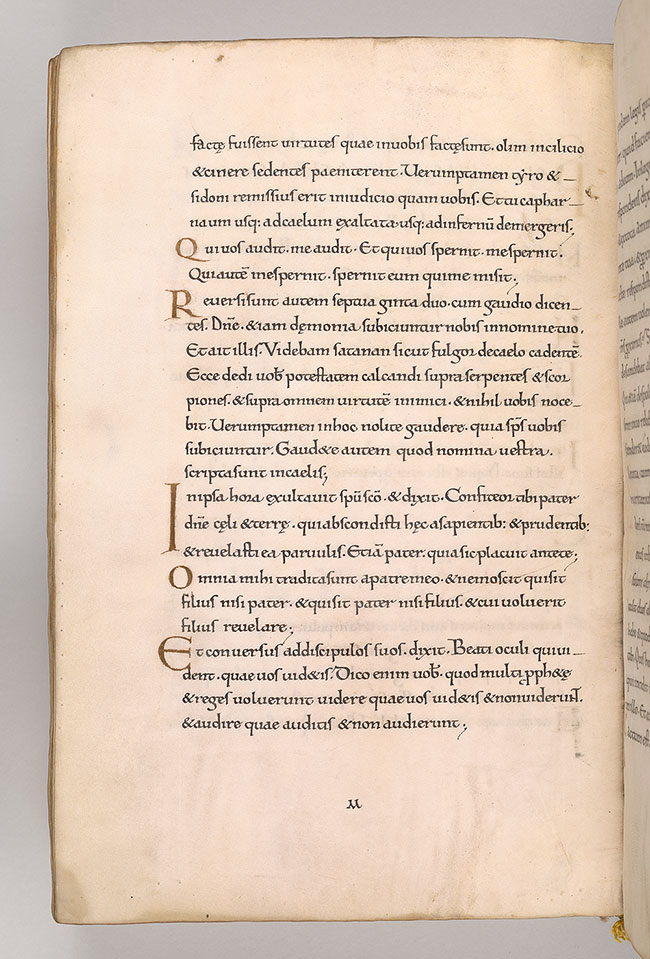 factę fuissent uirtutes quae inuobis factęsunt. olim incilicio
&cinere sedentes paeniterent. Ueruntamen tyro &
sidoni remissius erit iniudicio quam uobis. Ettu caphar
naum usq: adcaelum exaltata. usq: adinfernū demergeris;
Qui uos audit. me audit. Et qui uos spernit. mespernit.
Qui autē mespernit. spernit eum quime misit;
Reuersisunt autem septua ginta duo. cum gaudio dicen
tes. Dn̄e. &iam dęmonia subiciuntur nobis innomine tuo.
Etait illis. Videbam satanan sicut fulgor decaelo cadentē.
Ecce dedi uob̄ potestatem calcandi supra serpentes &scor
piones. &supra omnem uirtutē inimici. &nihil uobis noce
bit. Ueruntamen inhoc nolite gaudere. quia sp̄s uobis
subiciuntur. Gaud&e autem quod nomina uestra.
scriptasunt incaelis;
Inipsa hora exultauit spū scō. &dixit. Confiteor tibi pater
dn̄e cęli &terrę. qui abscondisti hęc asapientib: &prudentib:
&reuelasti ea paruulis. Etiā pater. quia sic placuit ante te;
Omnia mihi traditasunt apatre meo. &nemoscit quisit
filius nisi pater. &quisit pater nisi filius. &cui uoluerit
filius reuelare;
Et conuersus addiscipulos suos. dixit. Beati oculi quiui
dent. quae uos uid&is. Dico enim uob̄. quod multi pph&ę
&reges uoluerunt uidere quae uos uid&is &nonuiderunt.
&audire quae auditis &non audierunt;